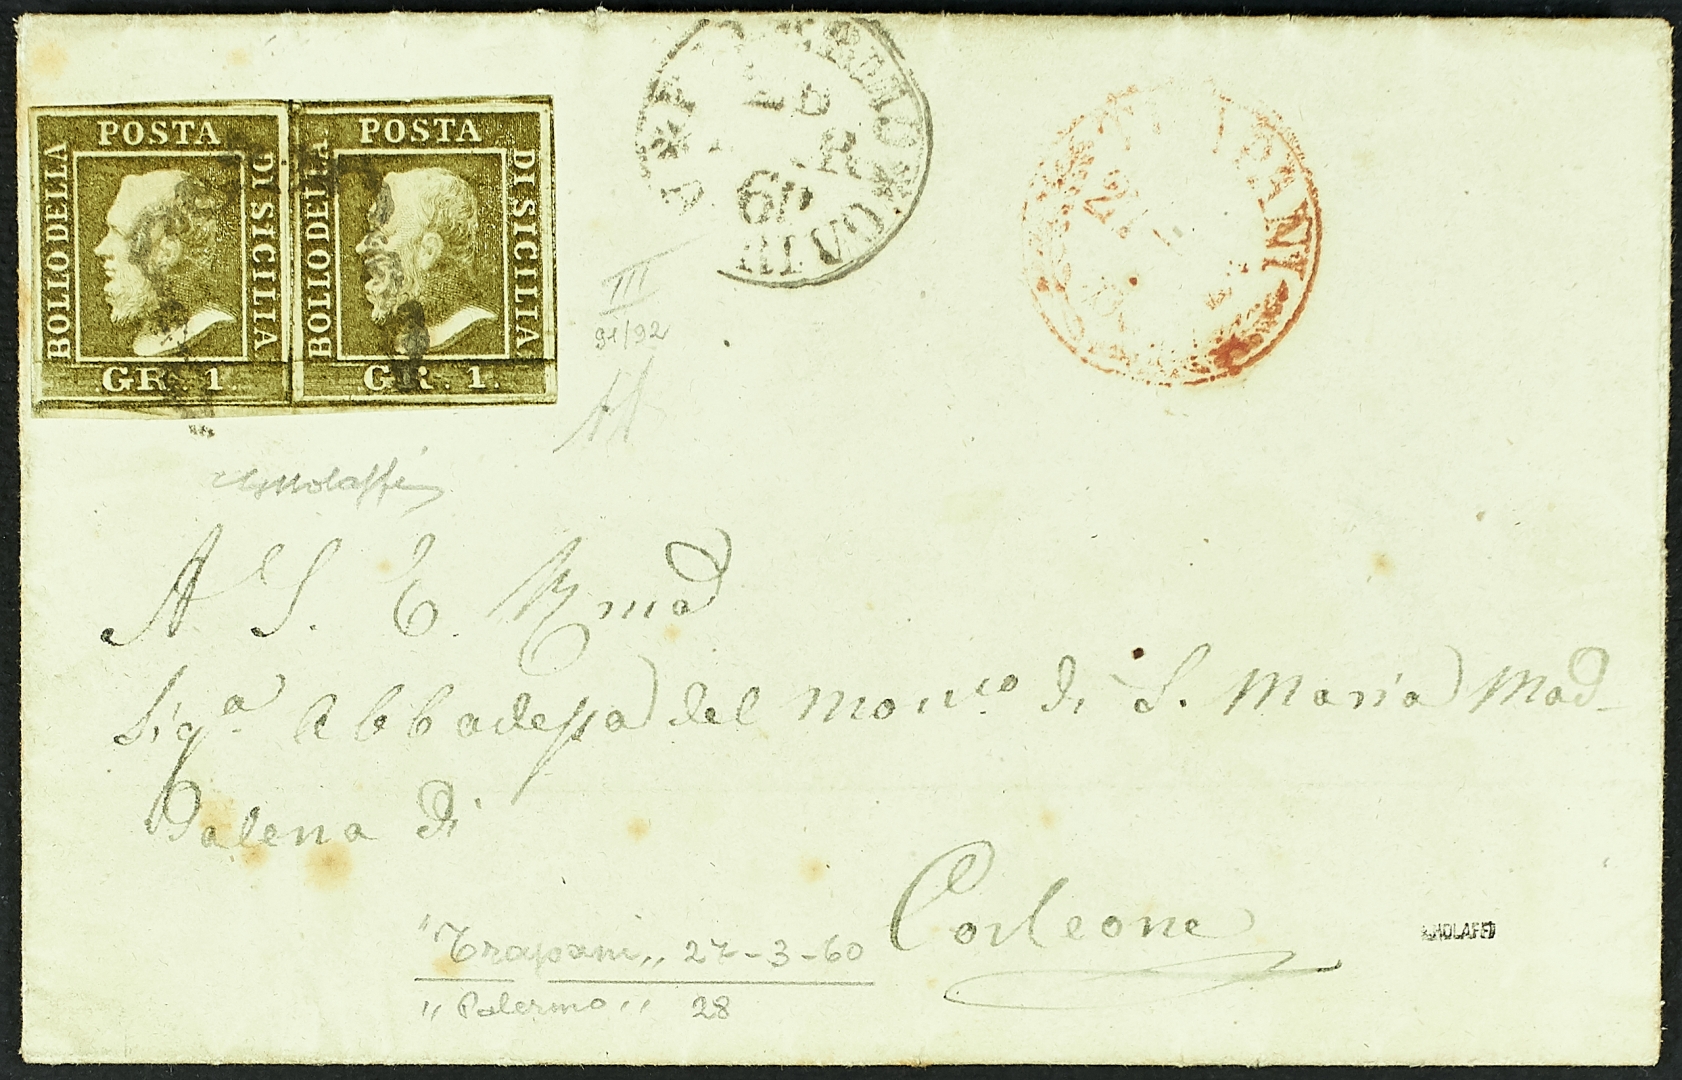 POSTA
BOLLO DELLA
DI SICILIA
GR. 1.
POSTA
BOLLO DELLA
DI SICILIA
GR. 1.
28
60
TRAPANI
27
III
91/92
A S. E. Rma
Sig.a Abbadessa del Mon.co di S. Maria Mad-
dalena di
Corleone
"Trapani" 27-3-60
"Palermo" 28